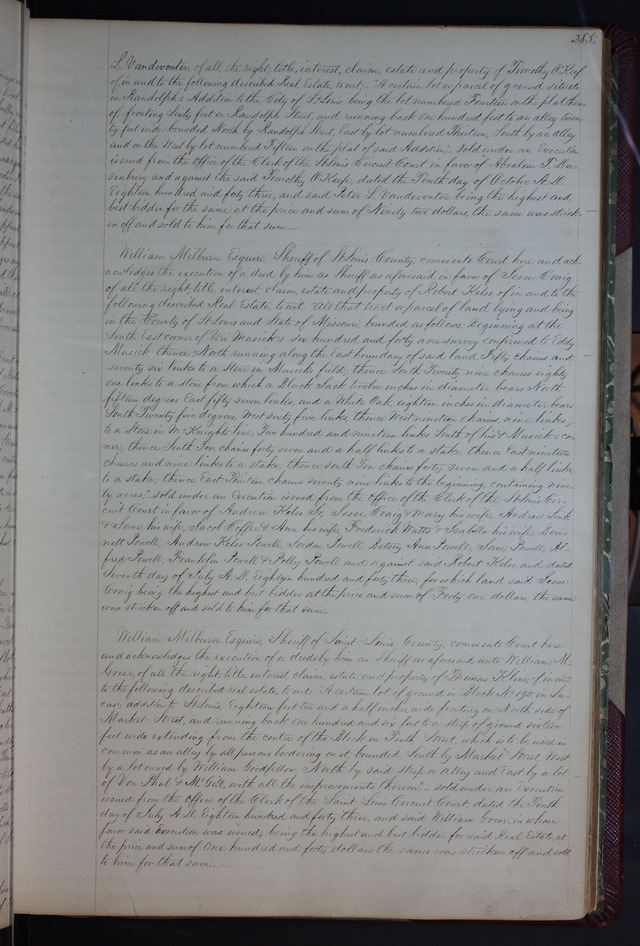 285.
L. Vandeventer, of all the right, title, interest, claim, estate and property of Timothy O'Keef
of, in and to the following described Real Estate, to wit: "A certain lot or parcel of ground situate
in Randolph's Addition to the City of St Louis being the lot numbered Fourteen on the plat thereof
fronting Sixty feet on Randolph Street, and running back one hundred feet to an alley twen-
ty feet wide, bounded North by Randolph Street, East by lot numbered Thirteen, South by an alley
and on the West by lot numbered Fifteen on the plat of said Addition". Sold under an Execution
issued from the Office of the Clerk of the St Louis Circuit Court in favor of Absalom T.
and against the said Timothy O'Keefe, dated the Tenth day of October A.D.
Eighteen hundred and forty three, and said Peter L. Vandeventer being the highest and
best bidder for the same, at the price and sum of Ninety two dollars, the same was strick-
en off and sold to him for that sum.
William Milburn Esquire, Sheriff of St Louis County, comes into Court here and ack-
nowledges the execution of a deed by him as Sheriff as aforesaid, in favor of Jesse Craig
of all the right, title, interest, claim, estate and property of Robert Kelso of, in and to the
following described Real Estate, to wit: "All that tract or parcel of land lying and being
in the County of St Louis and State of Missouri, bounded as follows, Beginning at the
South East corner of Uri Musick's six hundred and forty acre survey confirmed to Eddy
Musick, thence North running along the East boundary of said land Fifty chains and
seventy six links to a Stone in Musicks field, thence South Twenty nine chains eighty
one links to a stone from which a Black Jack twelve inches in diameter bears North
fifteen degrees East fifty seven links, and a White Oak eighteen inches in diameter bears
South Twenty five degrees West sixty five links, thence West nineteen chains, nine links,
to a Stone in McKnights line, Two hundred and nineteen links South of his & Musick's cor-
ner, thence South Ten chains forty seven and a half links to a stake, thence East nineteen
chains and nine links to a stake, thence South Ten chains forty seven and a half links
to a stake, thence East Thirteen chains seventy nine links to the beginning, containing nine-
ty acres," sold under an Execution issued from the office of the Clerk of the St Louis Cir-
cuit Court in favor of Andrew Kelso Sr, Jesse Craig & Mary his wife, Andrew
& Jane his wife, Jacob Coffee & Ann his wife, Frederick Watts & Isabella his wife,
Powell, Andrew Kelso Powell, Powell, Betsey Ann Powell, Jane Powell, Al-
fred Powell, Franklin Powell & Polly Powell and against said Robert Kelso, and dated
Seventh day of July A.D. Eighteen hundred and forty three, for which land said Jesse
Craig being the highest and best bidder at the price and sum of Forty one dollars, the same
was stricken off and sold to him for that sum.
William Milburn Esquire, Sheriff of Saint Louis County, comes into Court here
and acknowledges the execution of a deed by him as Sheriff as aforesaid unto William M.
Greer, of all the right, title, interest, claim, estate and property of Thomas of, in and
to the following described real estate, to wit: "A certain lot of ground in Block No 195 in Lu-
cas' addition to St Louis, Eighteen feet ten and a half inches wide fronting on North side of
Market Street, and running back one hundred and six feet to a strip of ground sixteen
feet wide extending from the centre of the Block in Tenth Street, which is to be used in
common as an alley by all persons bordering on it, bounded South by Market Street, West
by a lot owned by William Goodfellow, North by said strip or alley and East by a lot
of Von Phul & McGill, with all the improvements thereon", sold under an Execution
issued from the Office of the Clerk of the Saint Louis Circuit Court dated the Tenth
day of July A.D. Eighteen hundred and forty three, and said William Greer, in whose
favor said Execution was issued, being the highest and best bidder for said Real Estate, at
the price and sum of One hundred and forty dollars the same was stricken off and sold
to him for that sum.